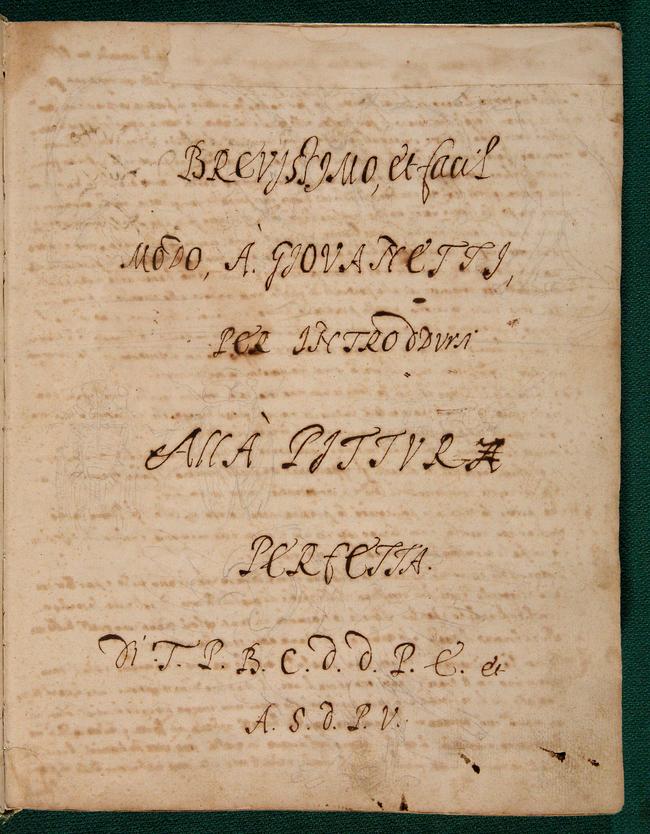 BREVISSIMO, et facil
MODO, À. GIOVANETTI,
PER INTRODDVrsi
AllÀ PITTVRA
PERfETTA.
Di T. P. B. C. d. d. P. E. et
A. S. d. P. V.